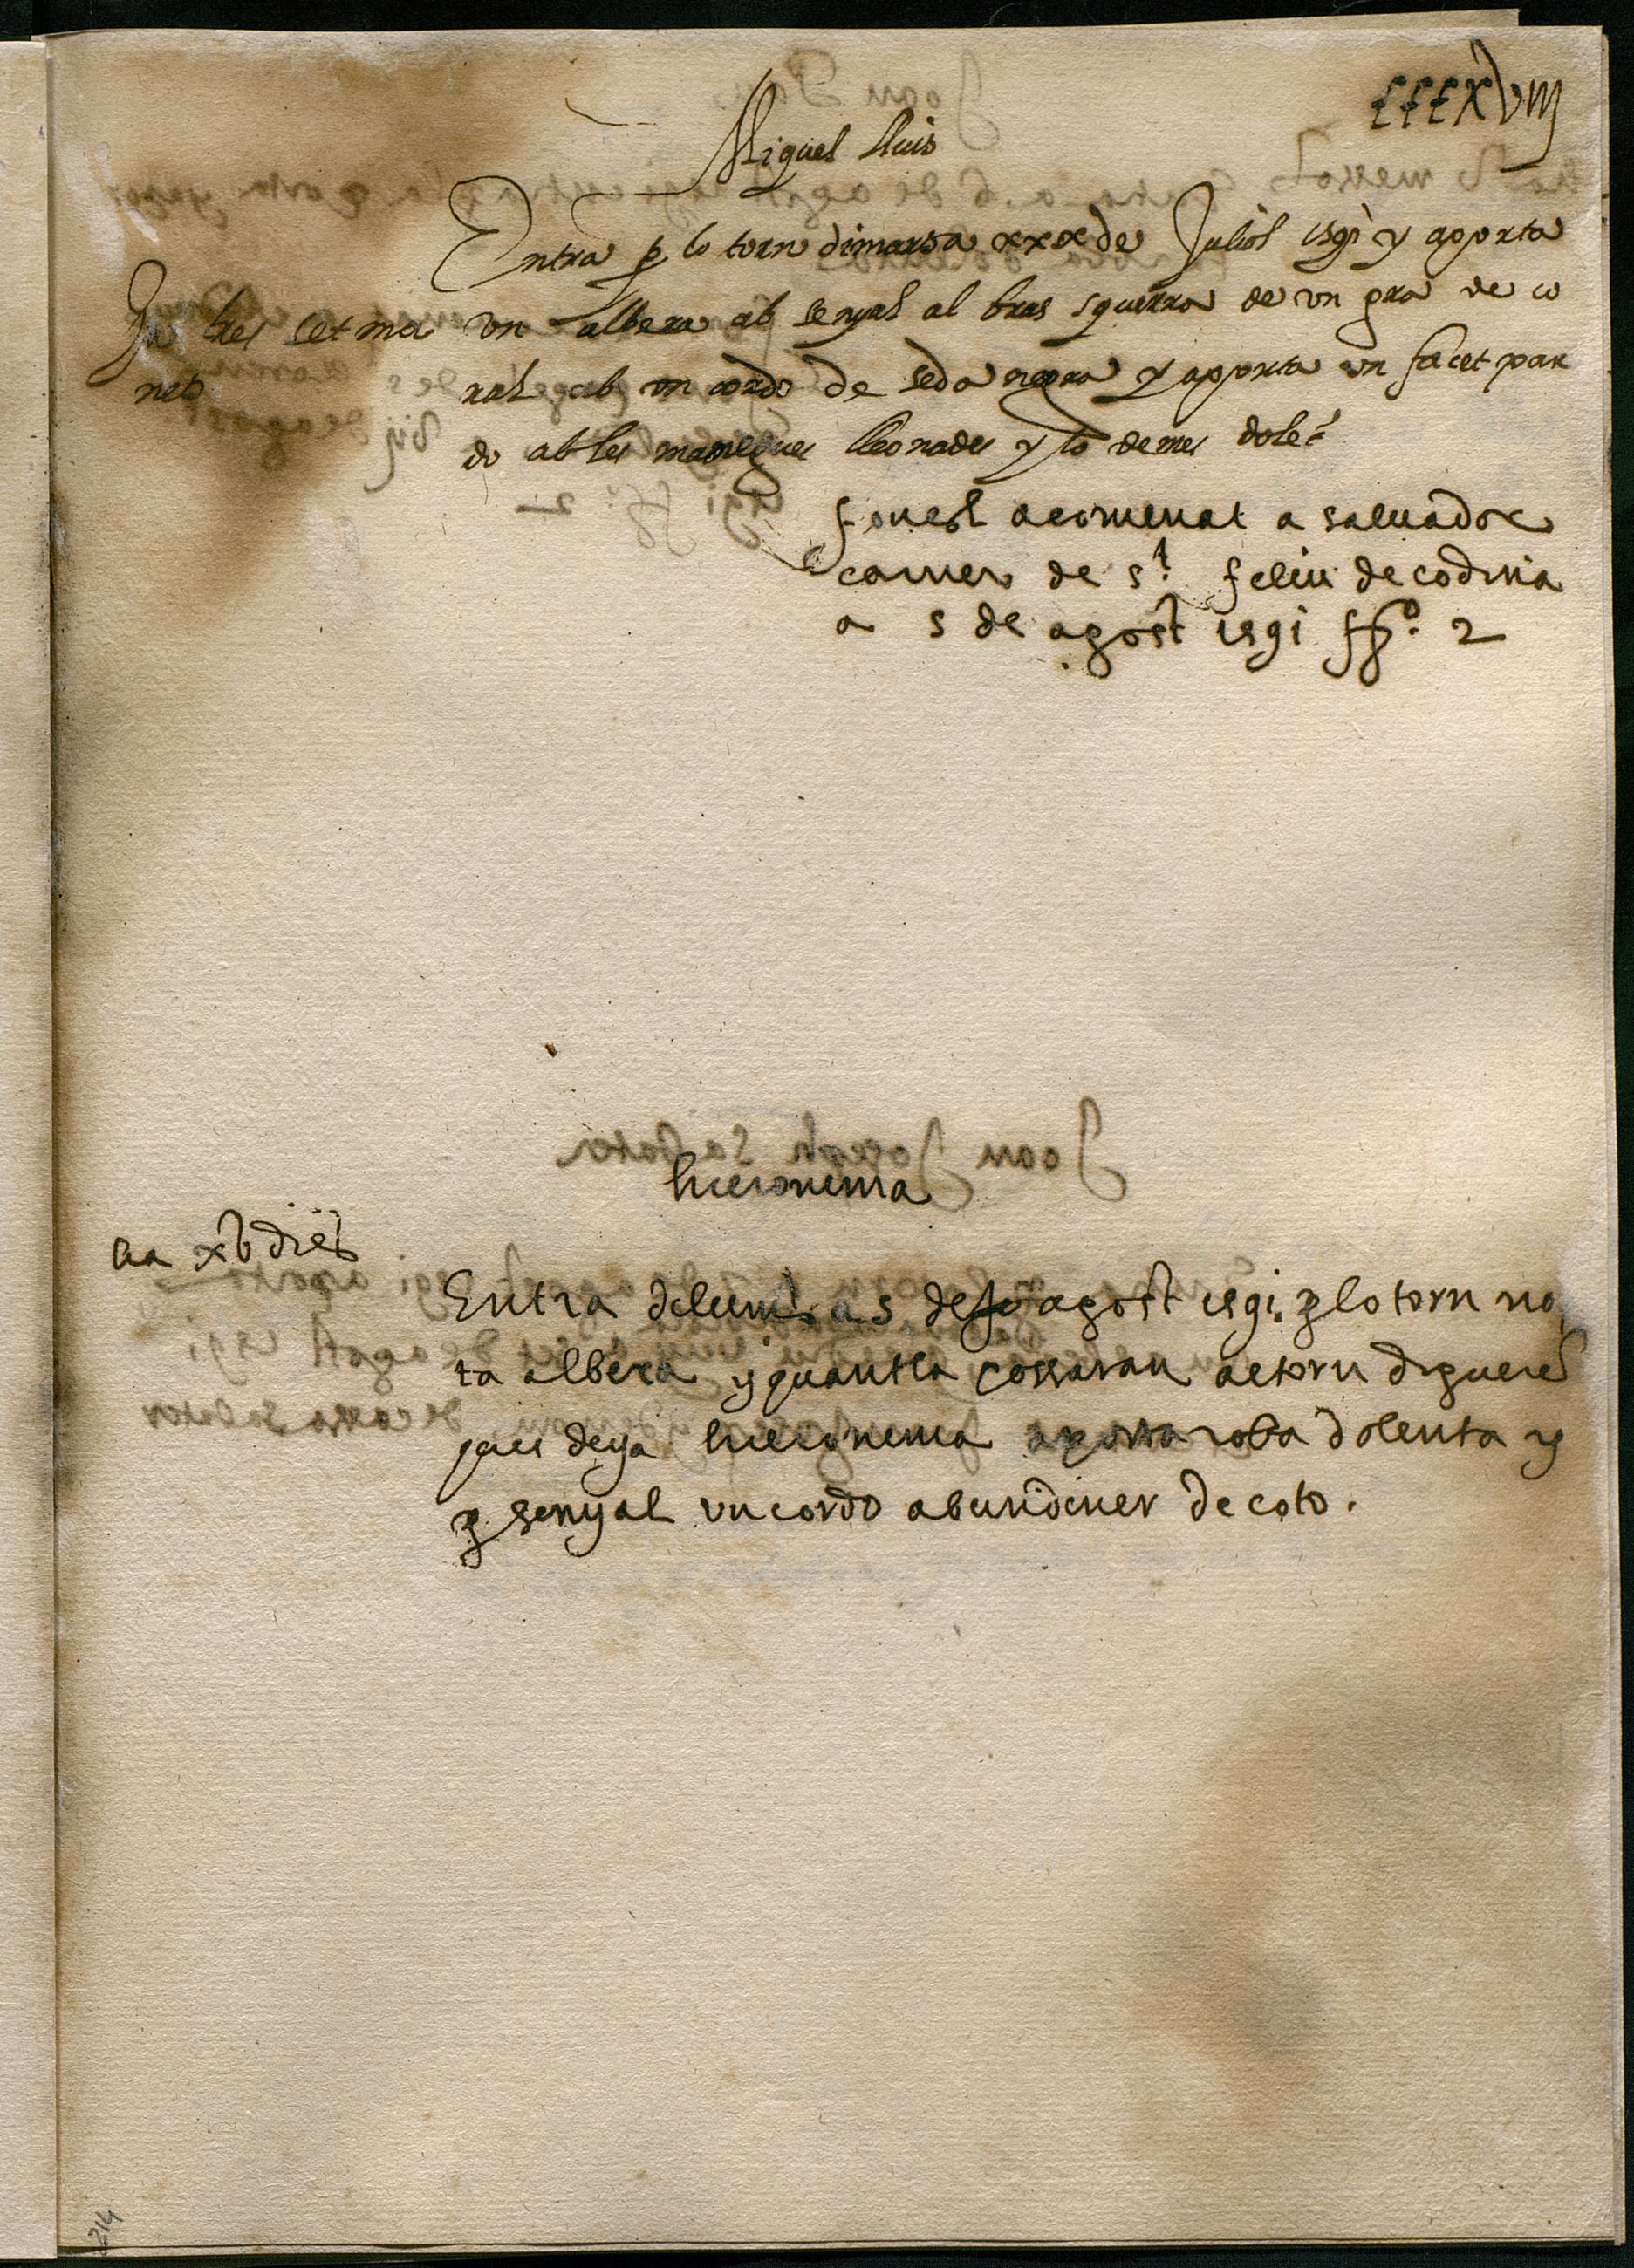 CCCXVIII
Miguel lluis
Entra p lo torn dimars a xxx de Juliol 1591 y aporta
Ja tres setma
nes
un albera ab senyal al bras squerra de un gra de co
ral ab un cordo de seda negra y aporta un sacet par
do ab les manegues lleonades y lo demes dolet
fonch acomenat a saluador
carner de st feliu de codina
a 5 de agost 1591 ff.º 2
hieronima
ha xv dies
Entra diluns a 5 de agost 1591. p lo torn no
ta albera y quant la possaran al torn digueren
que deya hieronima aporta roba dolenta y
p senyal un cordo ab un diner de coto.
214